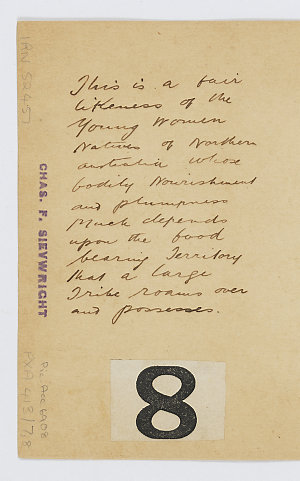 This is a fair
likeness of the
Young Women
Natives of Northern
Australia whose
bodily Nourishment
and plumpness
Much depends
upon the food
bearing Territory
that a large
Tribe roams over
and possesses.
CHAS. F. SIEVWRIGHT
8
Pic Acc 6908
PXA 413/78